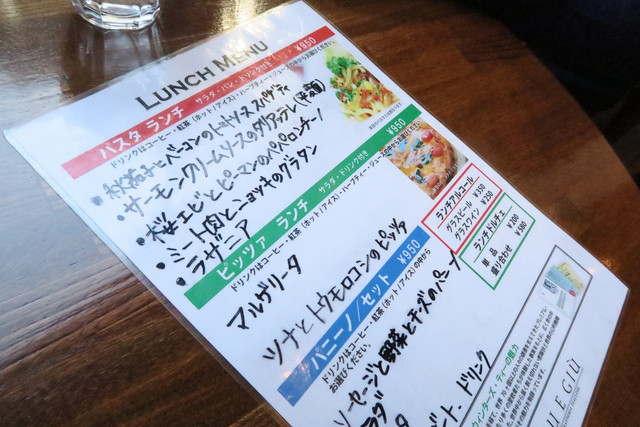 LUNCH MENU
パスタ ランチ サラダ・パン・ドリンク付き ¥950
ドリンクはコーヒー・紅茶(ホット/アイス)・ハーブティー・ジュースの中からお選びください。
・秋茄子とベーコンのトマトソーススパゲティ
・サーモンクリームソースのタリアッテレ(平麺)
・桜エビとピーマンのペペロンチーノ
・ミート肉とニョッキのグラタン
・ラザニア
ピッツァ ランチ サラダ・ドリンク付き ¥950
ドリンクはコーヒー・紅茶(ホット/アイス)・ハーブティー・ジュースの中からお選びください。
マルゲリータ
ツナとトウモロコシのピッツァ
パニーノ/セット ¥950
ドリンクはコーヒー・紅茶(ホット/アイス)の中から
お選びください。
ソーセージと野菜とチーズのパニーノ
ラダ
ート、ドリンク
ランチアルコール
グラスビール ¥350
グラスワイン ¥250
ランチドルチェ
単品 ¥200
盛り合わせ ¥580
ウィンターズ・ティーの魅力